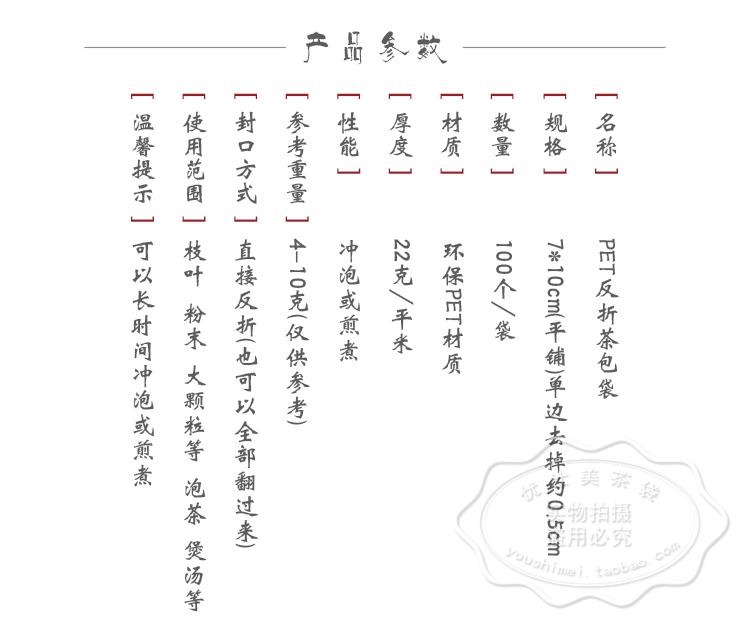 产品参数
[名称] PET反折茶包袋
[规格] 7*10cm(平铺)单边去掉约0.5cm
[数量] 100个/袋
[材质] 环保PET材质
[厚度] 22克/平米
[性能] 冲泡或煎煮
[参考重量] 4-10克(仅供参考)
[封口方式] 直接反折(也可以全部翻过来)
[使用范围] 枝叶 粉末 大颗粒等 泡茶 煲汤等
[温馨提示] 可以长时间冲泡或煎煮
美茶袋
实物拍摄
盗用必究
youshimei.taobao.com